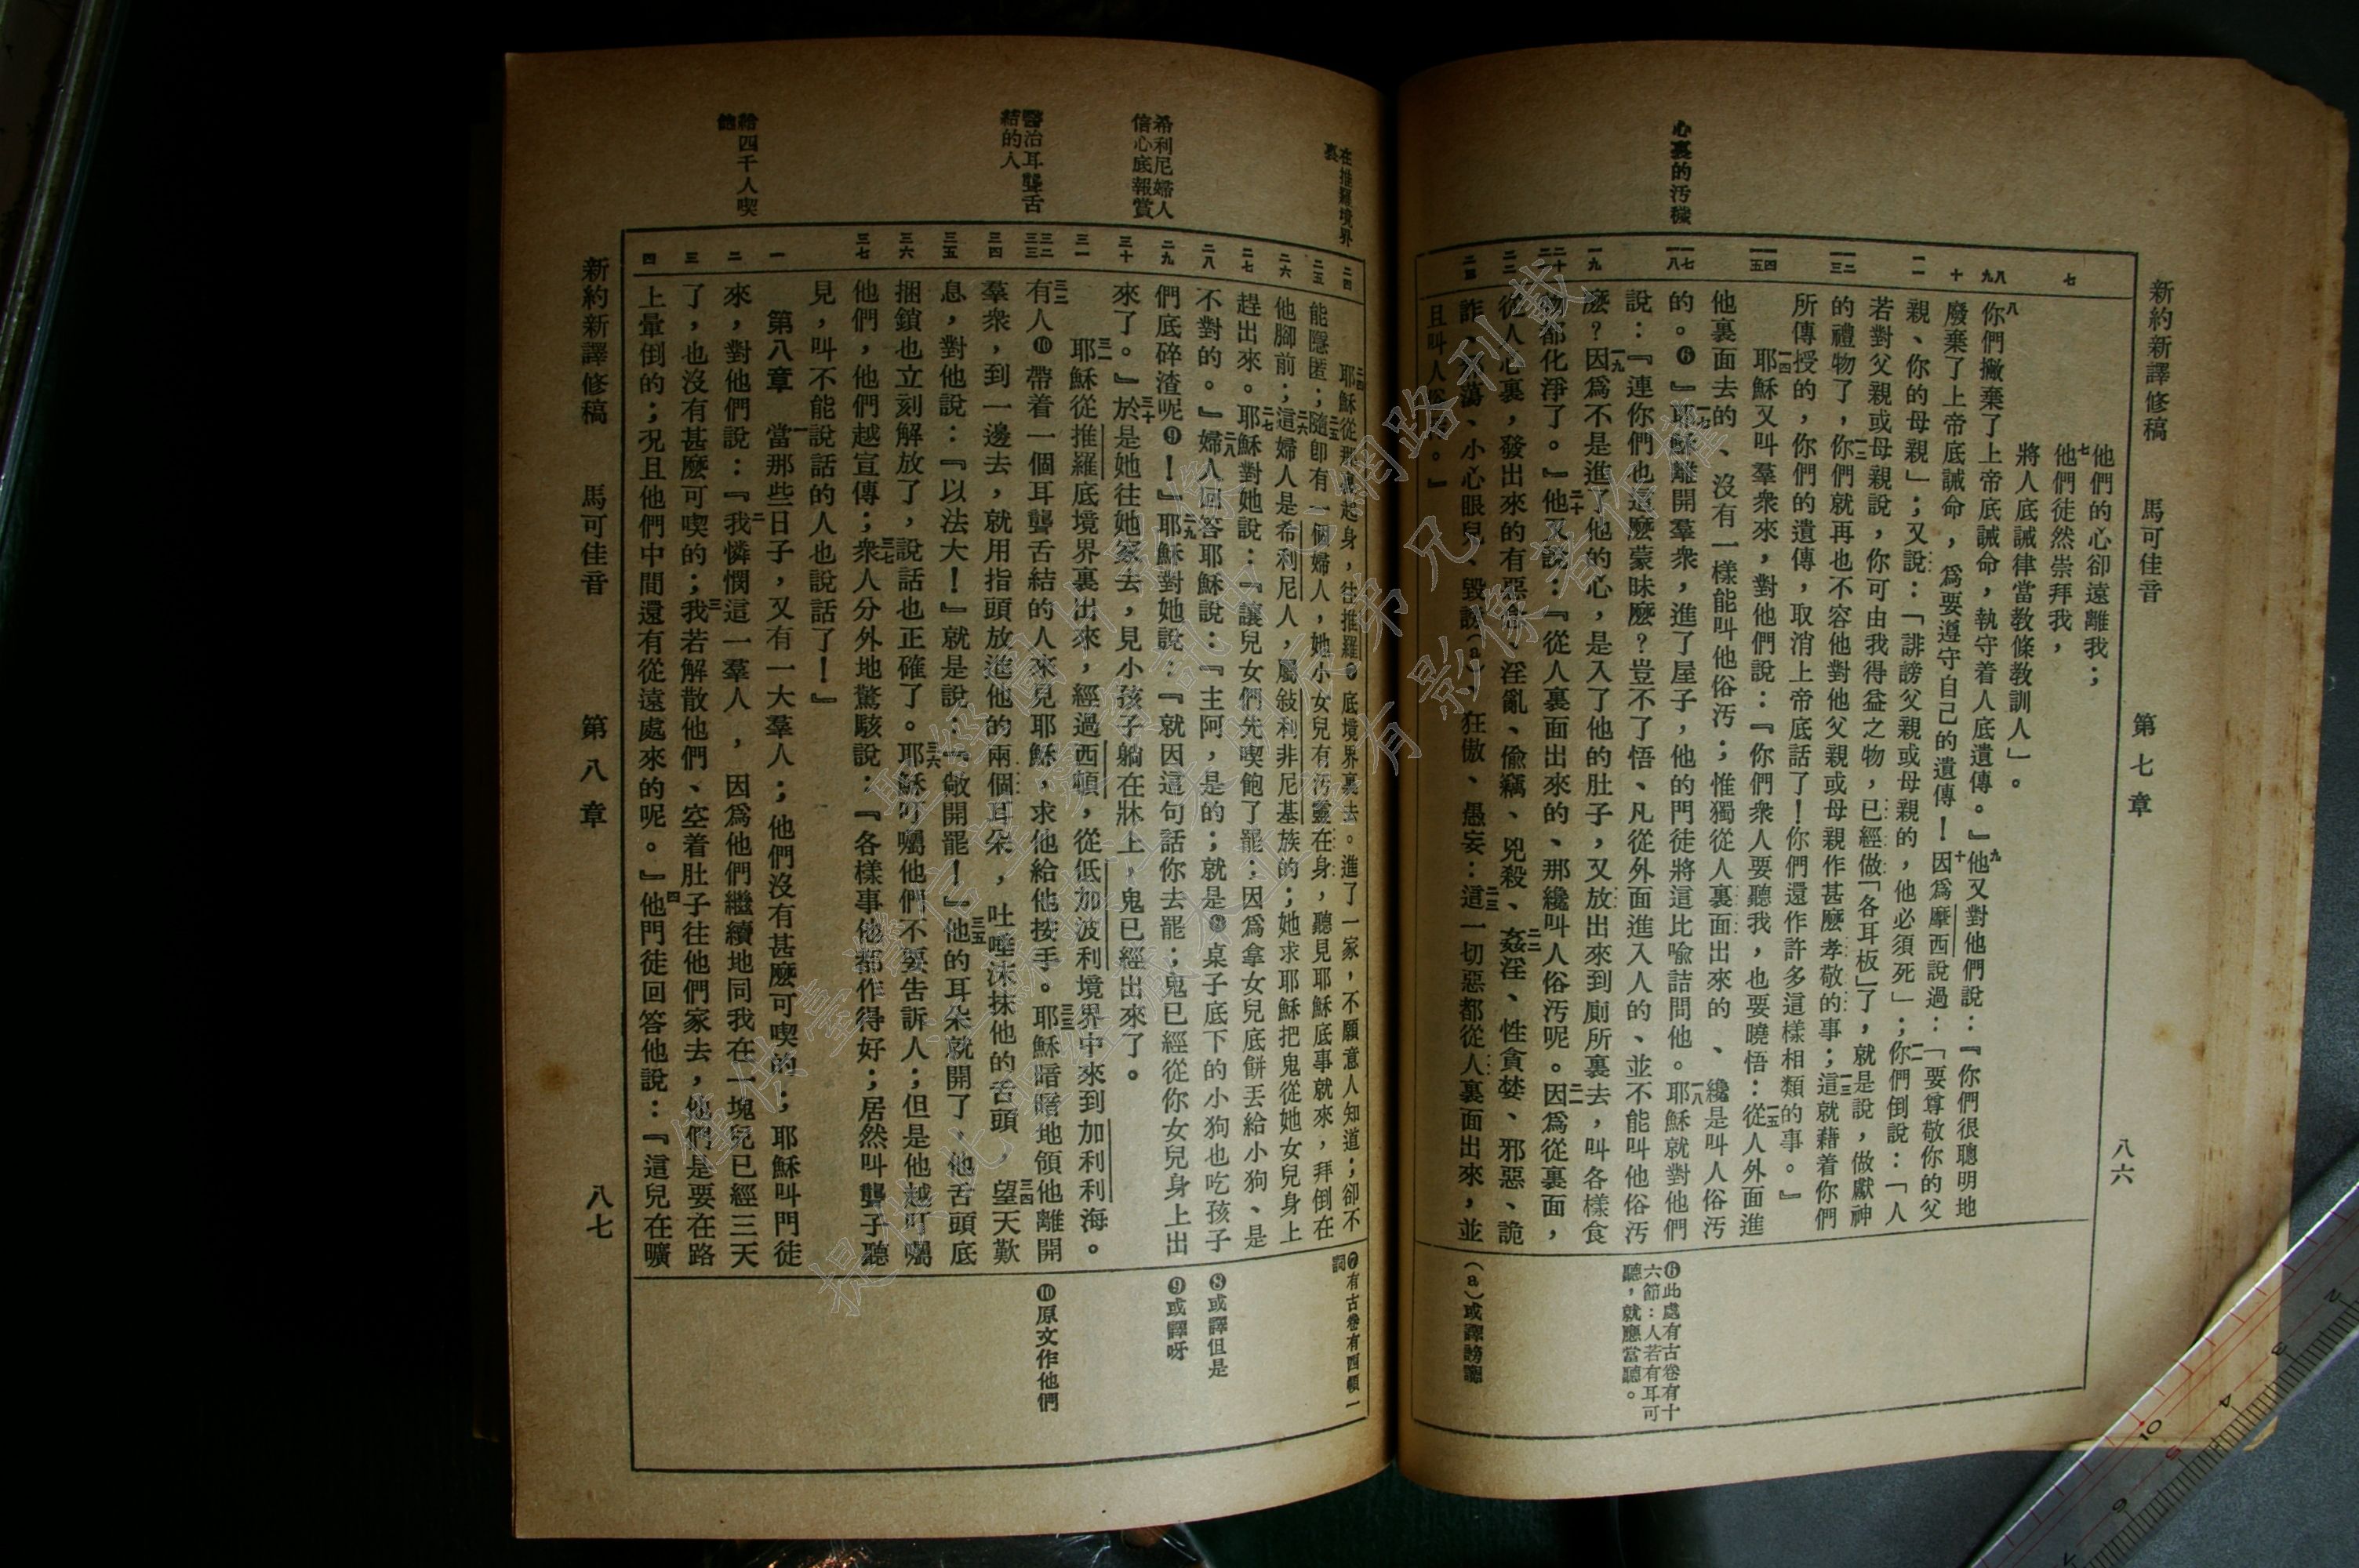 新約新譯修稿　馬可佳音　第七章　八六
心裏的汚穢
七
八
九
十
一一
一二
一三
一四
一五
一七
一八
一九
二十
二一
二二
二三
他們的心卻遠離我；
七他們徒然崇拜我，
將人底誡律當教條教訓人」。
八你們撇棄了上帝底誡命，執守着人底遺傳。』九他又對他們說：『你們很聰明地
廢棄了上帝底誡命，爲要遵守自己的遺傳！十因爲摩西說過：「要尊敬你的父
親、你的母親」；又說：「誹謗父親或母親的，他必須死」；一一你們倒說：「人
若對父親或母親說，你可由我得益之物，已經做「各耳板」了，就是說，做獻神
的禮物了，一二你們就再也不容他對他父親或母親作甚麽孝敬的事；一三這就藉着你們
所傳授的，你們的遺傳，取消上帝底話了！你們還作許多這樣相類的事。』
一四耶穌又叫羣衆來，對他們說：『你們衆人要聽我，也要曉悟：一五從人外面進
他裏面去的、沒有一樣能叫他俗汚；惟獨從人裏面出來的、纔是叫人俗汚
的。❻』一七耶穌離開羣衆，進了屋子，他的門徒將這比喻詰問他。一八耶穌就對他們
說：『連你們也這麽蒙昧麽？豈不了悟、凡從外面進入人的、並不能叫他俗汚
麽？一九因爲不是進了他的心，是入了他的肚子，又放出來到厠所裏去，叫各樣食
物都化淨了。』二十他又說：『從人裏面出來的、那纔叫人俗汚呢。二一因爲從裏面，
從人心裏，發出來的有惡念、淫亂、偷竊、兇殺、二二姦淫、性貪婪、邪惡、詭
詐、邪蕩、小心眼兒、毀謗（a）、狂傲、愚妄：二三這一切惡都從人裏面出來，並
且叫人俗汚。』
❻此處有古卷有十
六節：人若有耳可
聽，就應當聽。
（a）或譯謗讟
在推羅境界
裏
希利尼婦人
信心底報賞
醫治耳聾舌
結的人
給四千人喫
飽
二四
二五
二六
二七
二八
二九
三十
三一
三二
三三
三四
三五
三六
三七
一
二
三
四
二四耶穌從那裏起身，往推羅❼底境界裏去。進了一家，不願意人知道；卻不
能隱匿；二五隨即有一個婦人，她小女兒有汚靈在身，聽見耶穌底事就來，拜倒在
他腳前；二六這婦人是希利尼人，屬敍利非尼基族的；她求耶穌把鬼從她女兒身上
趕出來。二七耶穌對她說：『讓兒女們先喫飽了罷；因爲拿女兒底餅丟給小狗、是
不對的。』二八婦人回答耶穌說：『主阿，是的；就是❽桌子底下的小狗也吃孩子
們底碎渣呢❾！』二九耶穌對她說：『就因這句話你去罷；鬼已經從你女兒身上出
來了。』三十於是她往她家去，見小孩子躺在牀上，鬼已經出來了。
三一耶穌從推羅底境界裏出來，經過西頓，從低加波利境界中來到加利利海。
三二有人❿帶着一個耳聾舌結的人來見耶穌，求他給他按手。三三耶穌暗暗地領他離開
羣衆，到一邊去，就用指頭放進他的兩個耳朵，吐唾沫抹他的舌頭，三四望天歎
息，對他說：『以法大！』就是說：『敞開罷！』三五他的耳朵就開了，他舌頭底
捆鎖也立刻解放了，說話也正確了。三六耶穌叮囑他們不要告訴人；但是他越叮囑
他們，他們越宣傳；三七衆人分外地驚駭說：『各樣事他都作得好；居然叫聾子聽
見，叫不能說話的人也說話了！』
第八章　一當那些日子，又有一大羣人；他們沒有甚麽可喫的；耶穌叫門徒
來，對他們說：『二我憐憫這一羣人，因爲他們繼續地同我在一塊兒已經三天
了，也沒有甚麽可喫的；三我若解散他們、空着肚子往他們家去，他們是要在路
上暈倒的；況且他們中間還有從遠處來的呢。』四他門徒回答他說：『這兒在曠
❼有古卷有西頓一
詞
❽或譯但是
❾或譯呀
❿原文作他們
新約新譯修稿　馬可佳音　第八章　八七